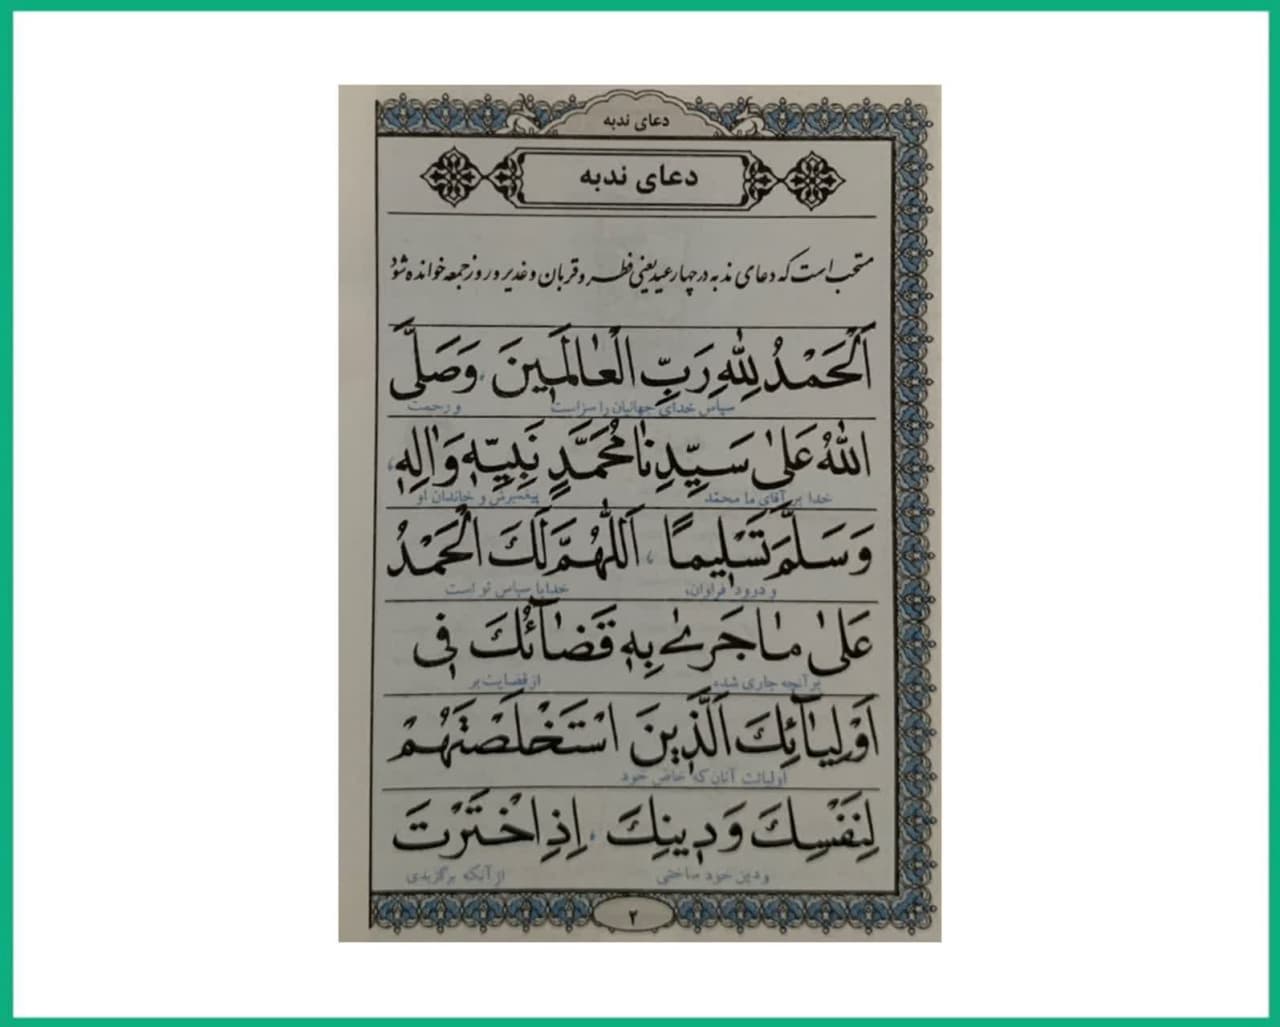 دعای ندبه
دعای ندبه
مستحب است که دعای ندبه در چهار عید یعنی فطر و قربان و غدیر و روز جمعه خوانده شود
اَلْحَمْدُ لِلّٰهِ رَبِّ الْعٰالَمٖينَ، وَصَلَّى
سپاس خدای جهانیان را سزاست و رحمت
اللّٰهُ عَلىٰ سَيِّدِنٰا مُحَمَّدٍ نَبِيِّهٖ وَاٰلِهٖ،
خدا بر آقای ما محمّد پیغمبرش و خاندان او
وَسَلَّمَ تَسْلٖيمًا، اَللّٰهُمَّ لَكَ الْحَمْدُ
و درود فراوان، خدایا سپاس تو است
عَلىٰ مٰا جَرىٰ بِهٖ قَضٰآئُكَ فٖى
بر آنچه جاری شده از قضایت بر
اَوْلِيٰآئِكَ الَّذٖينَ اسْتَخْلَصْتَهُمْ
اولیائت آنان که خاص خود
لِنَفْسِكَ وَدٖينِكَ، اِذِ اخْتَرْتَ
و دین خود ساختی از آنکه برگزیدی
۲